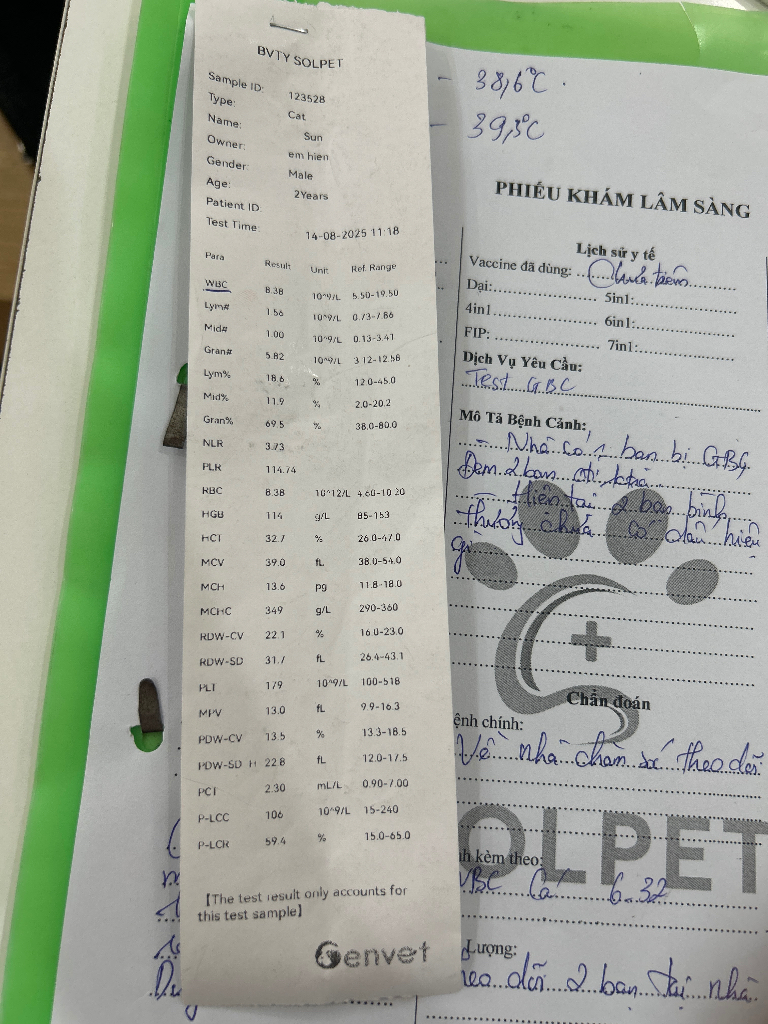 BVTY SOLPET
Sample ID: 123528
Type: Cat
Name: Sun
Owner: em hien
Gender: Male
Age: 2Years
Patient ID:
Test Time: 14-08-2025 11:18
Para Result Unit Ref. Range
WBC 8.38 10^9/L 5.50-19.50
Lym# 1.56 10^9/L 0.73-7.86
Mid# 1.00 10^9/L 0.13-3.41
Gran# 5.82 10^9/L 3.12-12.58
Lym% 18.6 % 12.0-45.0
Mid% 11.9 % 2.0-20.2
Gran% 69.5 % 38.0-80.0
NLR 3.73
PLR 114.74
RBC 8.38 10^12/L 4.60-10.20
HGB 114 g/L 85-153
HCT 32.7 % 26.0-47.0
MCV 39.0 fL 38.0-54.0
MCH 13.6 pg 11.8-18.0
MCHC 349 g/L 290-360
RDW-CV 22.1 % 16.0-23.0
RDW-SD 31.7 fL 26.4-43.1
PLT 179 10^9/L 100-518
MPV 13.0 fL 9.9-16.3
PDW-CV 13.5 % 13.3-18.5
PDW-SD H 22.8 fL 12.0-17.5
PCT 2.30 mL/L 0.90-7.00
P-LCC 106 10^9/L 15-240
P-LCR 59.4 % 15.0-65.0
【The test result only accounts for
this test sample】
Genvet
- 38,6°C.
- 39,3°C
PHIẾU KHÁM LÂM SÀNG
Lịch sử y tế
Vaccine đã dùng: Chưa tiêm
Dại: 5in1:
4in1 6in1:
FIP: 7in1:
Dịch Vụ Yêu Cầu:
Test GBC
Mô Tả Bệnh Cảnh:
- Nhà có 1 bạn bị GBC
Đem 2 bạn đi
- Hiện tại 2 bạn bình
thường chưa có dấu hiệu
gì
Chẩn đoán
ệnh chính:
Về nhà chăm só theo dõi
SOLPET
nh kèm theo:
WBC 6.32
Lượng:
heo dõi 2 bạn tại nhà